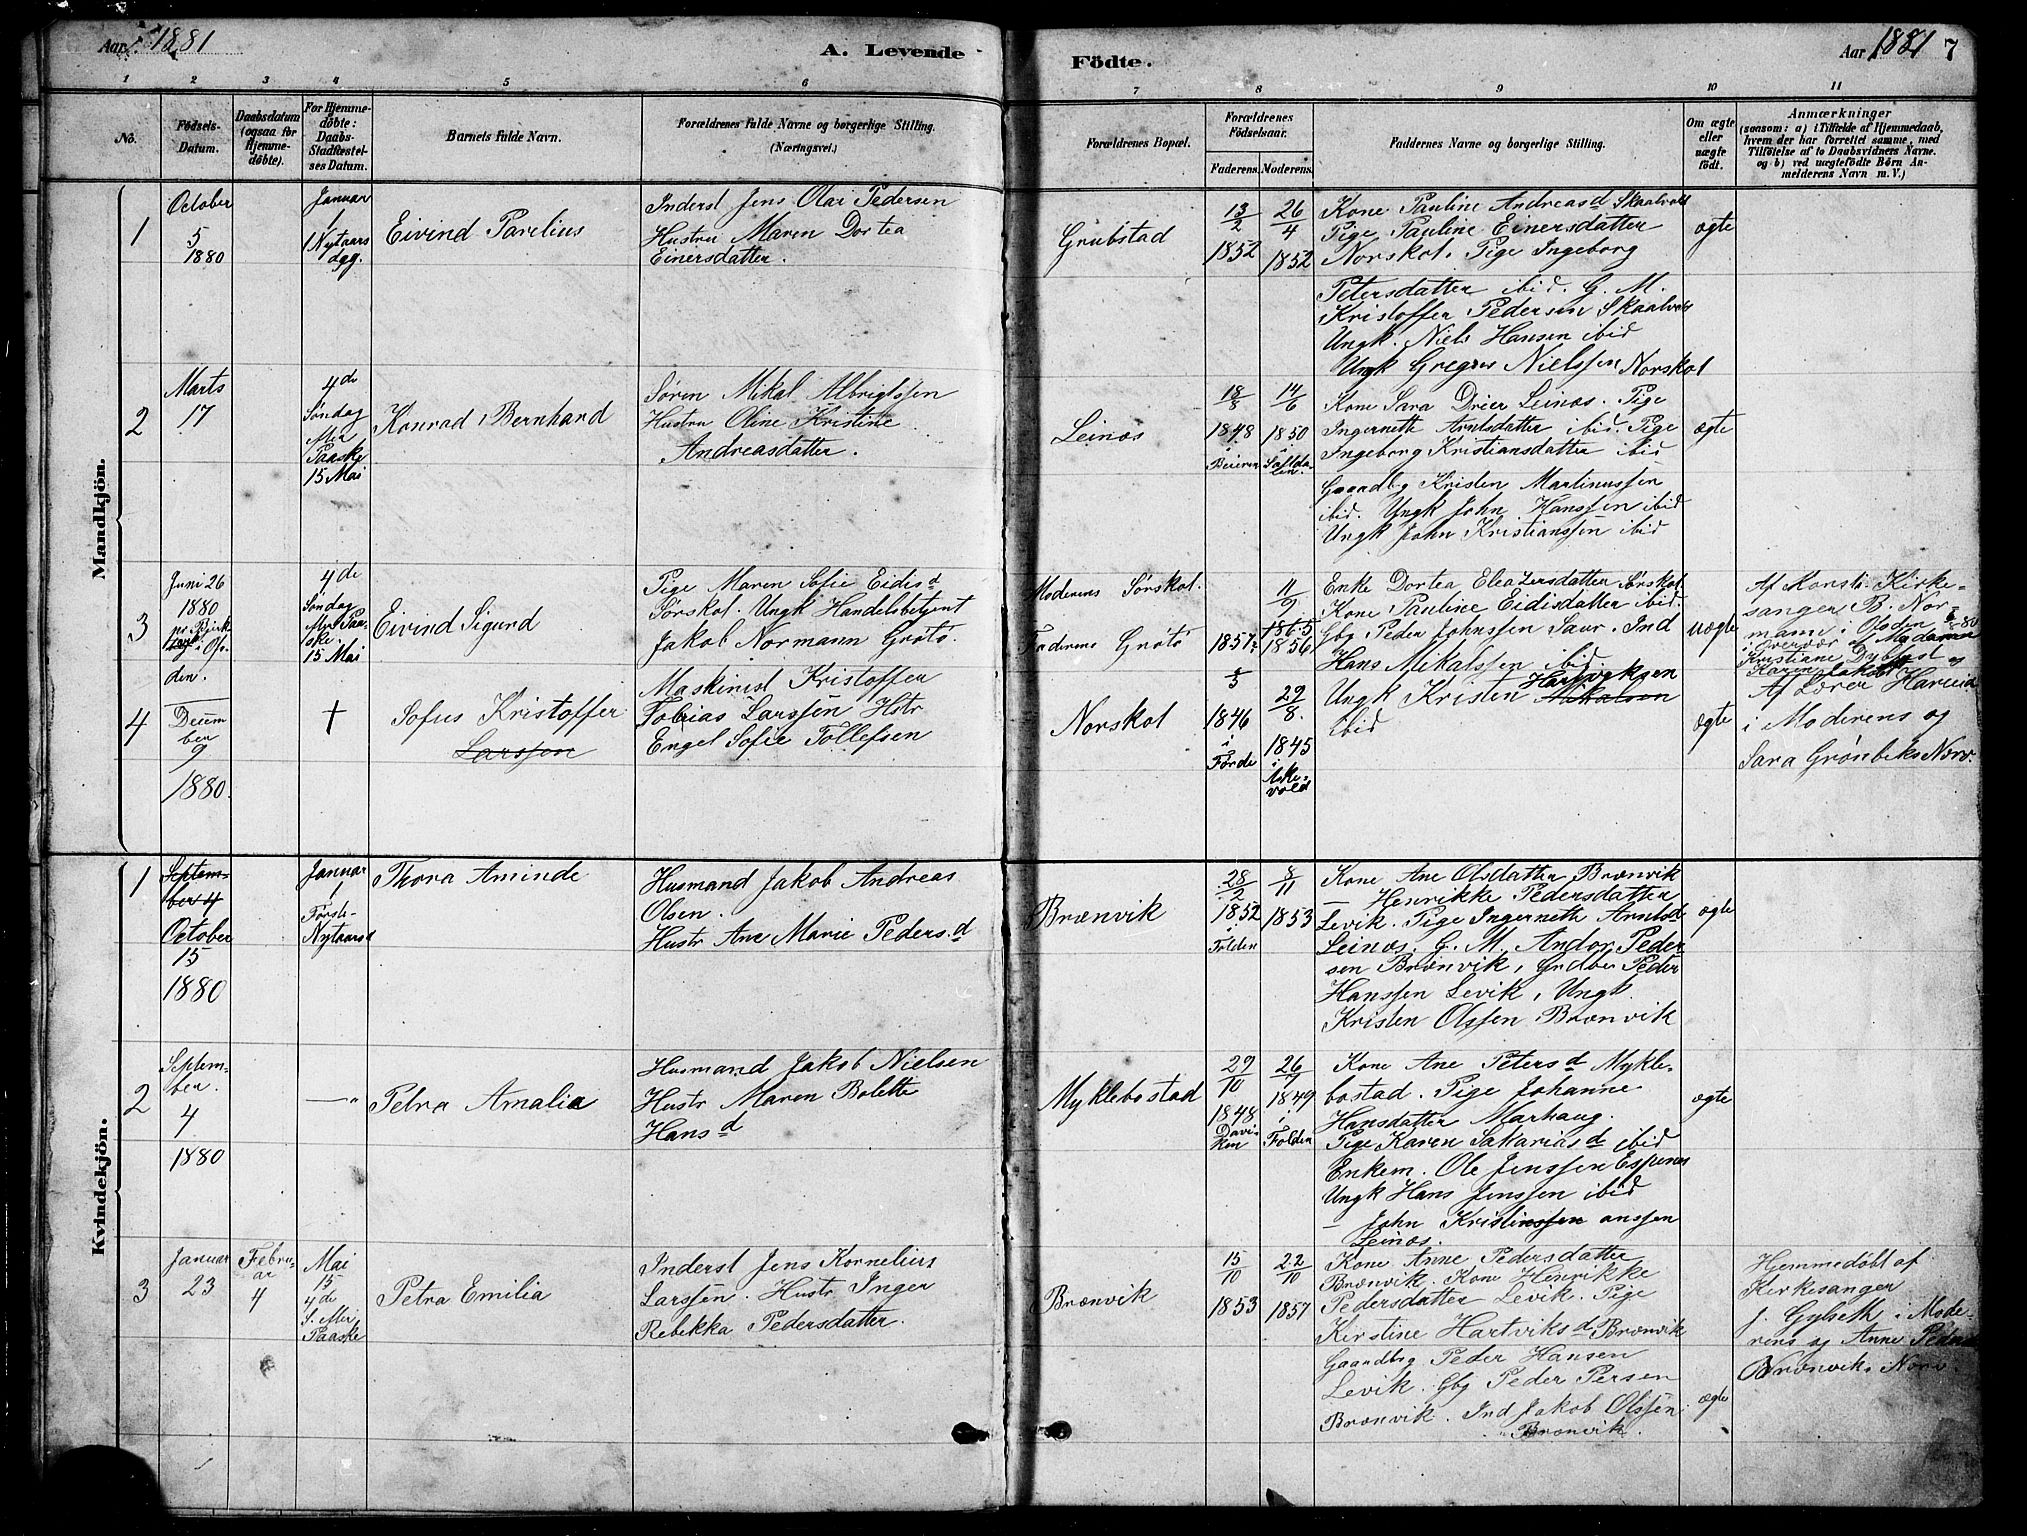 Aar 1881
A. Levende
Födte.
Aar 1881 7
1 2 3 4 5 6 7 8 9 10 11
No.
Födsels-
Datum.
Daabsdatum
(ogsaa for
Hjemme-
döbte).
For Hjemme-
döbte:
Daabs-
Stadfæstel-
ses Datum.
Barnets fulde Navn.
Forældrenes fulde Navne og borgerlige Stilling.
(Næringsvei.)
Forældrenes Bopæl.
Forældrenes
Födselsaar.
Faderens. Moderens.
Faddernes Navne og borgerlige Stilling.
Om ægte
eller
uægte
födt.
Anmærkninger
(saasom: a) i Tilfælde af Hjemmedaab,
hvem der har forrettet samme, med
Tilföielse af to Daabsvidners Navne.
og b) ved uægtefödte Börn An-
melderens Navn m. V.)
Mandkjön.
1
October
5
1880
Januar
1
Nytaars
dag.
Eivind Parelius
Inderst Jens Olai Pedersen
Hustru Maren Dortea
Einersdatter.
Grubstad
13
2
1852
26
4
1852
Kone Pauline Andreasd Skaalvold
Pige Pauline Einersdatter
Norskot. Pige Ingeborg
Petersdatter ibid. G. M.
Kristoffer Pedersen Skaalvold
Ungk. Niels Hansen ibid
Ungk Gregers Nielssen Norskot
ægte
2
Marts
17
4de
Søndag
efter
Paaske
15 Mai
Konrad Bernhard
Søren Mikal Albrigtssen
Hustru Oline Kristine
Andreasdatter.
Leinæs
18
8
1848
i
Beieren
14
6
1850
i
Saltda-
len.
Kone Sara Dreier Leinæs. Pige
Ingerneth Arntsdatter ibid. Pige
Ingeborg Kristiansdatter ibid
Gaardbg Kristen Martinussen
ibid. Ungk John Hanssen ibid
Ungk John Kristianssen ibid
ægte
3
Juni 26
1880
den.
4de
Søndag
efter Paa-
ske.
15 Mai
Eivind Sigurd
Pige Maren Sofie Eidisd
Sørskot. Ungk Handelsbetjent
Jakob Normann Grøtø.
Moderens Sørskot.
Faderens Grøtø
1857
11
9
1856
Enke Dortea Eleazersdatter Sørskot
Kone Pauline Eidisdatter ibid.
Gbg Peder Johnssen Saur. Ind
Hans Mikalssen ibid.
Ungk Kristen Hartviksen
ibid
uægte
Af Konst. Kirke-
sanger B. Nor-
mann i Olsden
Kristiane Dybfest og
4
Decem
ber
9
1880.
†
Sofus Kristoffer
Larssen
Maskinist Kristoffer
Tobias Larssen Hstr
Engel Sofie Tollefsen
Norskot
5
5
1846
i
Førde
29
8.
1845
i
Aske-
vold
ægte
Af Lærer Harveid
i Moderens og
Sara Grønbeks Nærv.
Kvindekjön.
1
Septem-
ber 4
October
15
1880
Januar
1
Første-
Nytaarsd
Thora Aminde
Husmand Jakob Andreas
Olsen.
Hustr Ane Marie Peders.d
Brænvik
28
2
1852
i
Folden
8
11
1853
Kone Ane Olsdatter Brænvik
— Henrikke Pedersdatter
Levik. Pige Ingerneth Arntsd
Leinæs. G. M. Andor Peder
sen Brænvik, Grdbr Peder
Hanssen Levik, Ungk
Kristen Olssen Brænvik
ægte
2
Septem-
ber.
4
1880
—"
Petra Amalia
Husmand Jakob Nielsen
Hustr Maren Bolette
Hansd
Myklebostad
29
10
1848
Davi-
ken
26
7
1849
i
Folden
Kone Ane Petersd Mykle-
bostad. Pige Johanne
Hansdatter Marhaug.
Pige Karen Sakariasd ibid
Enkem. Ole Jenssen Espenes
Ungk Hans Jenssen ibid
— John Kristinssen anssen
Leinæs.
ægte
3
Januar
23
Febru-
ar
4
Mai
15
4de
S. efter
Paaske
Petra Emilia
Inderst Jens Kornelius
Larssen. Hustr Inger
Rebekka Pedersdatter.
Brænvik
15
10
1853
22
10
1857
Kone Anne Pedersdatter
Brænvik. Kone Henrikke
Pedersdatter Levik. Pige
Kirstine Hartviksd Brænvik
Gaardbrg Peder Hansen
Levik. Gbg Peder Persen
Brænvik. Ind Jakob Olssen
Brænvik.
ægte
Hjemmedøbt af
Kirkesanger
J. Gylseth i Mode-
rens og Anne Peders
Brænviks Nærv.